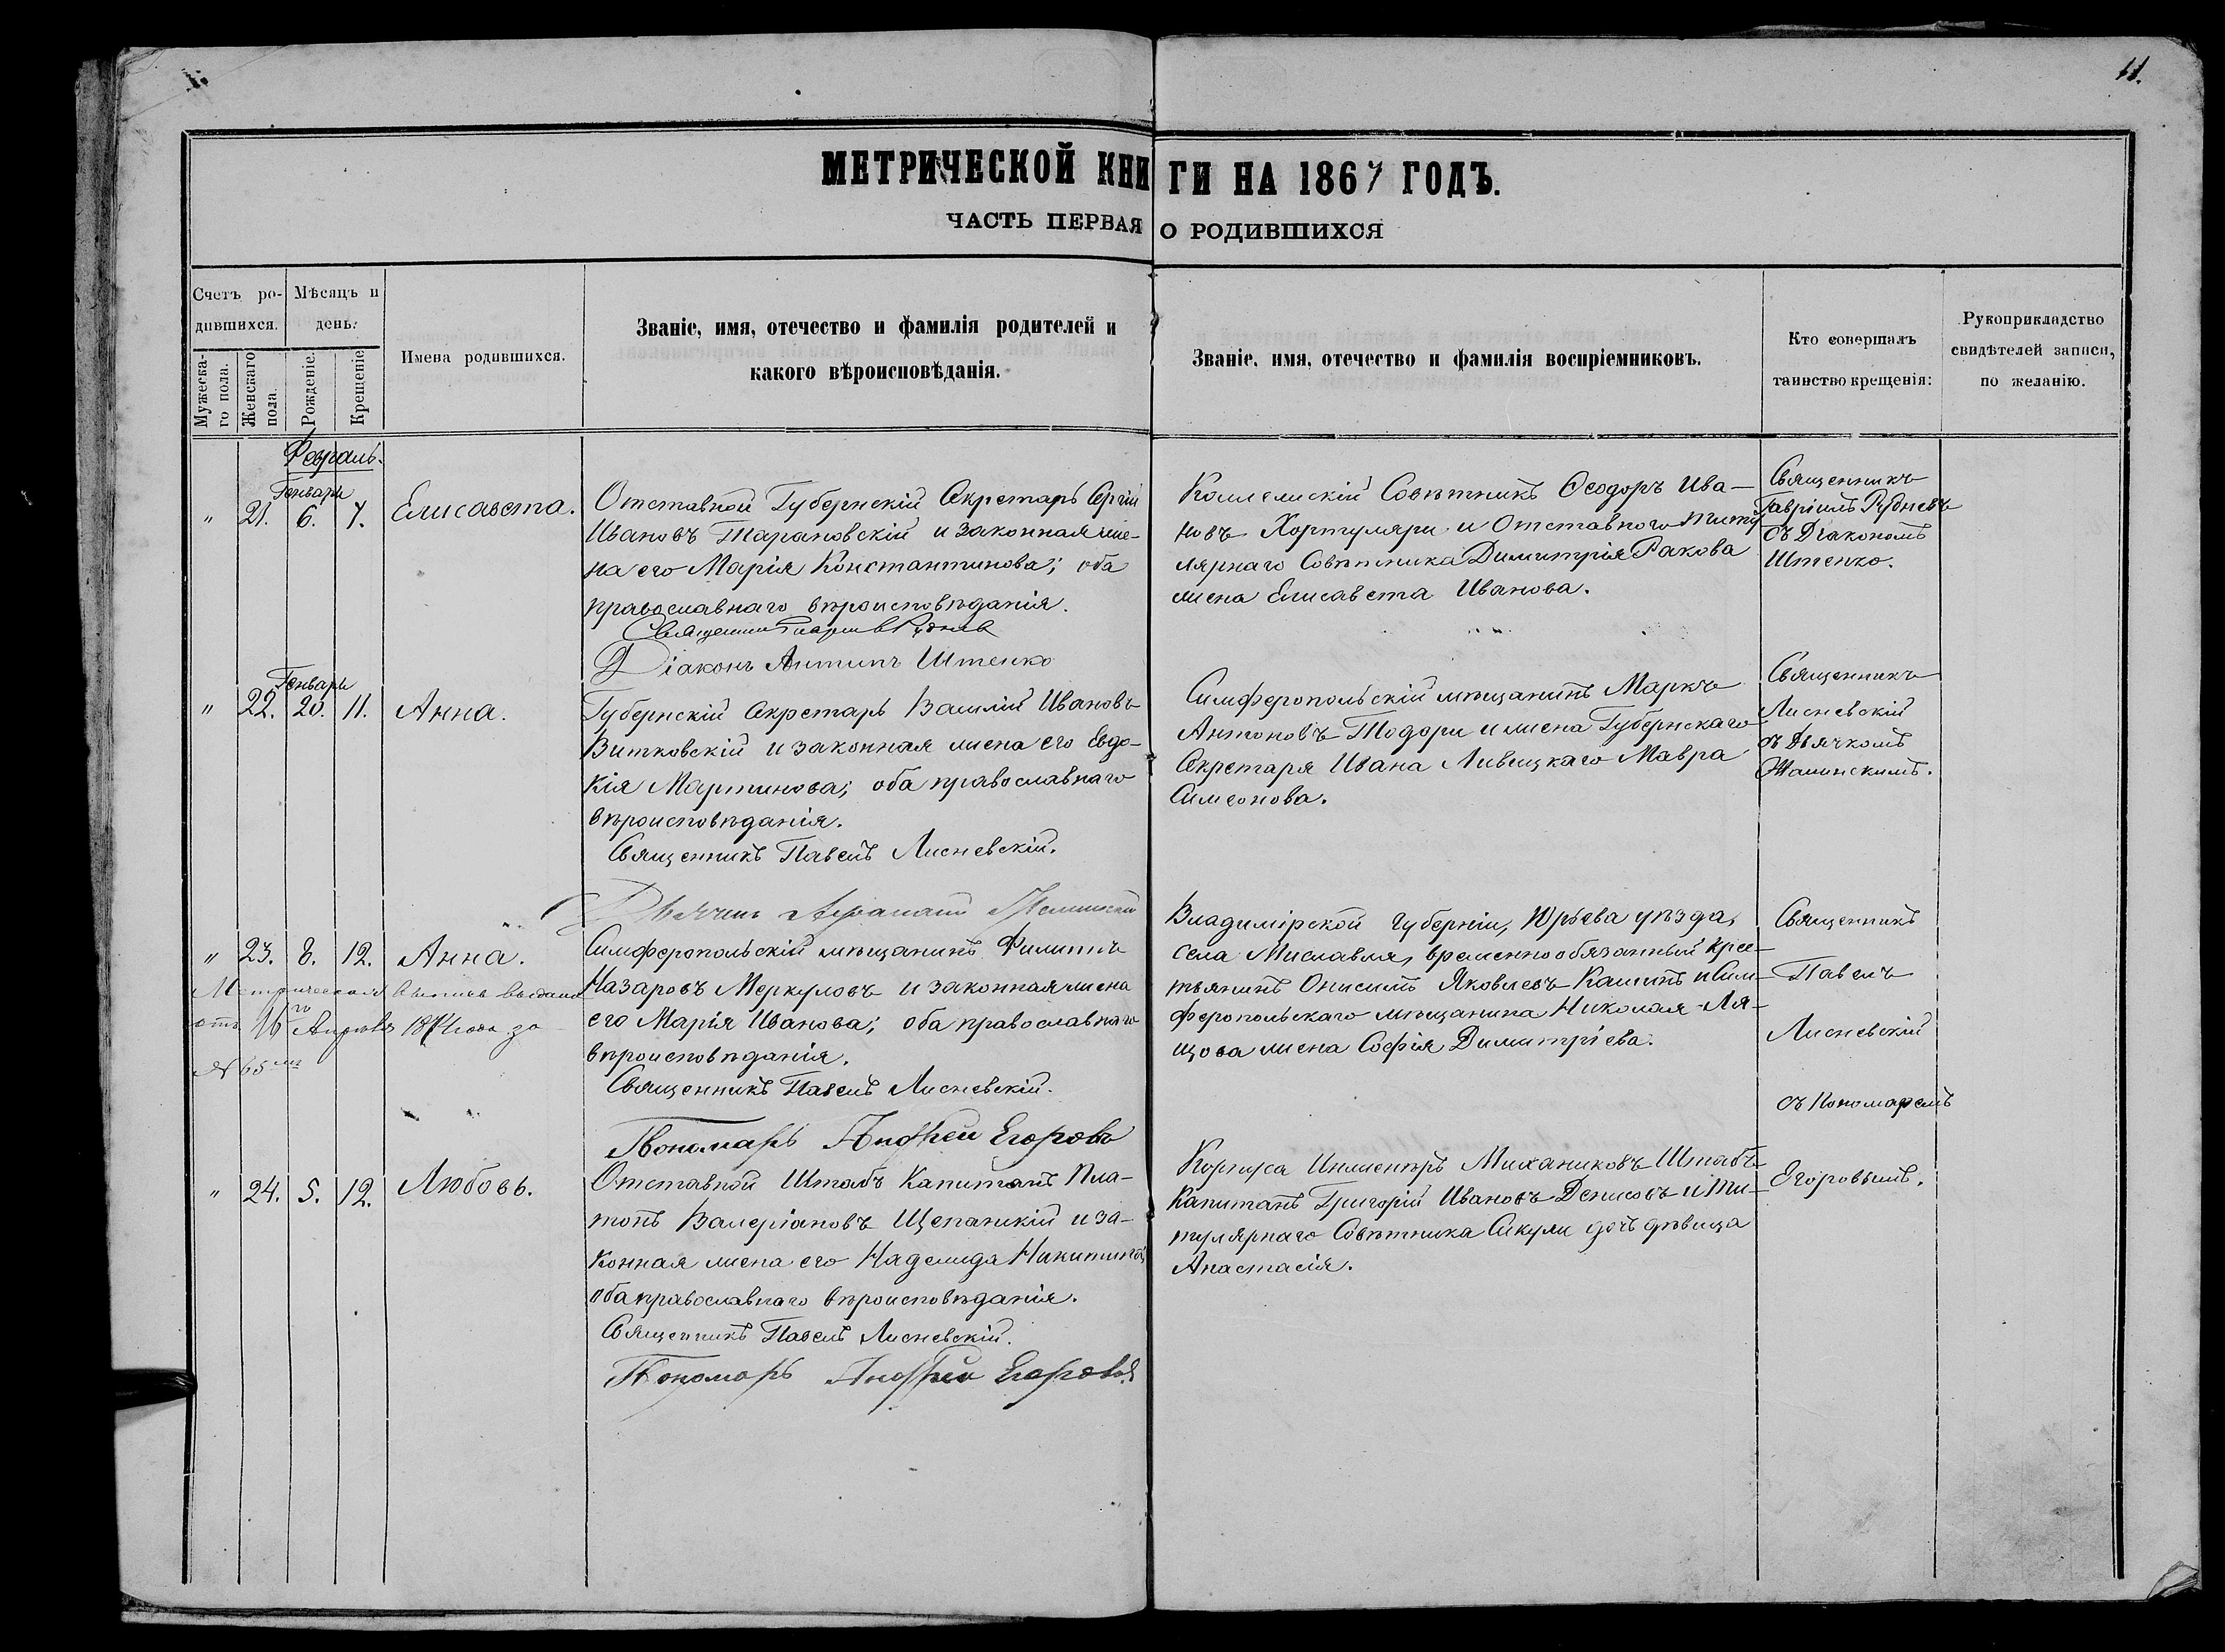 11.
МЕТРИЧЕСКОЙ КНИГИ НА 1867 ГОДЪ.
ЧАСТЬ ПЕРВАЯ О РОДИВШИХСЯ
Счетъ ро-
дившихся.
Мѣсяцъ и
день.
Мужеска-
го пола.
Женскаго
пола.
Рожденіе.
Крещеніе
Имена родившихся.
Званіе, имя, отечество и фамилія родителей и
какого вѣроисповѣданія.
Званіе, имя, отечество и фамилія воспріемниковъ.
Кто совершалъ
таинство крещенія:
Рукоприкладство
свидѣтелей записи,
по желанію.
Февраль.
Генварь
" 21. 6. 7. Елисавета.
Отставной Губернскій Секретарь Сергій
Ивановъ Тарановскій и законная же-
на его Марія Константинова; оба
православнаго вѣроисповѣданія.
Священникъ Гавріилъ Рудневъ
Діаконъ Антипъ Штенко
Коллежскій Совѣтникъ Ѳеодоръ Ива-
новъ Хортуляри и Отставного Титу
лярнаго Совѣтника Димитрія Ракова
жена Елисавета Иванова.
Священникъ
Гавріилъ Рудневъ
съ Діакономъ
Штенко.
Генварь
" 22. 20. 11. Анна.
Губернскій Секретарь Василій Ивановъ
Витковскій и законная жена его Евдо-
кія Мартинова; оба православнаго
вѣроисповѣданія.
Священникъ Павелъ Лисневскій.
Дьячекъ
Симферопольскій мѣщанинъ Маркъ
Антоновъ Тодори и жена Губернскаго
Секретаря Ивана Ливицкаго Мавра
Симеонова.
Священникъ
Лисневскій
съ Дьячкомъ
" 23. 8. 12. Анна.
Метрическая выпись выдана
отъ 16го Апрѣля 1874 года за
№ 65мъ
Симферопольскій мѣщанинъ Филиппъ
Назаровъ Меркуловъ и законная жена
его Марія Иванова; оба православнаго
вѣроисповѣданія.
Священникъ Павелъ Лисневскій.
Пономарь Андрей Егоровъ
Владимірской губерніи, Юрьева уѣзда,
села Миславля, временнообязанный крес-
тьянинъ Онисимъ Яковлевъ Кашинъ и Сим-
феропольскаго мѣщанина Николая Ля-
щова жена Софія Димитріева.
Священникъ
Павелъ
Лисневскій
съ Пономаремъ
Егоровымъ.
" 24. 5. 12. Любовь.
Отставной Штабъ Капитанъ Пла-
тонъ Валеріановъ Щепанскій и за-
конная жена его Надежда Никитина,
оба православнаго вѣроисповѣданія.
Священникъ Павелъ Лисневскій.
Пономарь Андрей Егоровъ
Корпуса Инженеръ Механиковъ Штабъ-
Капитанъ Григорій Ивановъ Денисовъ и Ти-
тулярнаго Совѣтника Сикули дочь дѣвица
Анастасія.